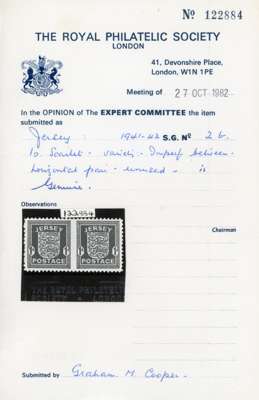 Nº 122884
THE ROYAL PHILATELIC SOCIETY
LONDON
41, Devonshire Place,
London, W1N 1PE
Meeting of 27 OCT 1982
In the OPINION of The EXPERT COMMITTEE the item
submitted as
Jersey: 1941-42 S.G. Nº 2b.
1d Scarlet - variety - Imperf between -
horizontal pair - unused - is
Genuine.
Observations
Chairman
122884
JERSEY JERSEY
6 6 6
POSTAGE POSTAGE
THE ROYAL PHILATELIC
SOCIETY LONDON
Submitted by Graham M. Cooper.